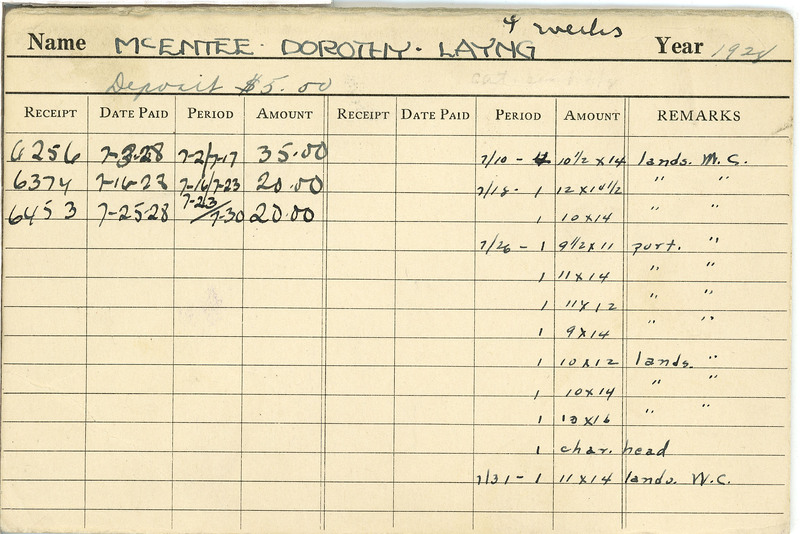 4 weeks
Name McENTEE. DOROTHY. LAYNG Year 1928
Deposit $5.00
RECEIPT DATE PAID PERIOD AMOUNT RECEIPT DATE PAID PERIOD AMOUNT REMARKS
6256 7-3-28 7-2/7-17 35.00 7/10 - 4 10 1/2 x 14 lands. W.C.
6374 7-16-28 7-16/7-23 20.00 7/18 - 1 12 x 10 1/2 " "
6453 7-25-28 7-23/7-30 20.00 1 10 x 14 " "
7/26 - 1 9 1/2 x 11 port. "
1 11 x 14 " "
1 11 x 12 " "
1 9 x 14 " "
1 10 x 12 lands. "
1 10 x 14 " "
1 13 x 16 " "
1 char. head
7/31 - 1 11 x 14 lands. W.C.